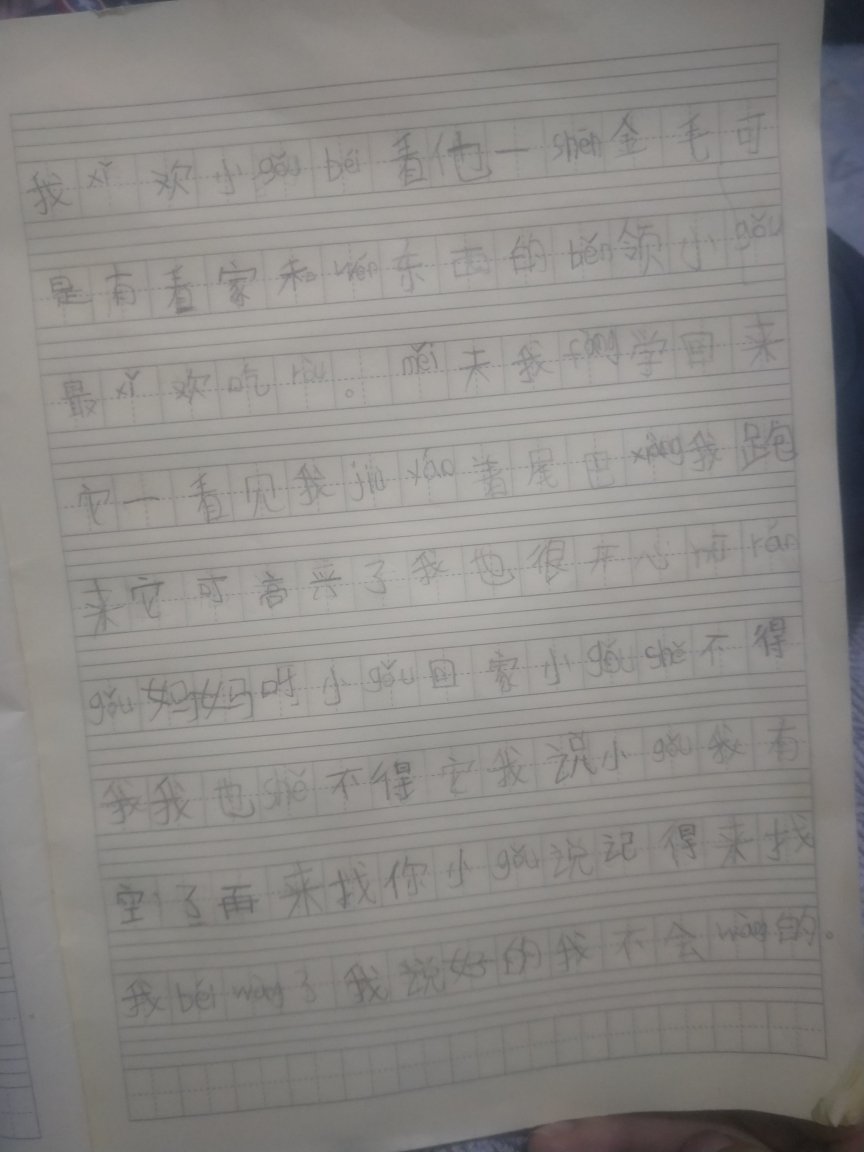 我xǐ欢小gǒu béi看他一shēn金毛可
是有看家和wén东西的běn领小gǒu
最xǐ欢吃ròu。měi天我fàng学回来
它一看见我jiù yáo着尾巴xiàng我跑
来它可高兴了我也很开心rán
gǒu妈妈叫小gǒu回家小gǒu shě不得
我我也shě不得它我说小gǒu我有
空了再来找你小gǒu说记得来找
我béi wàng了我说好的我不会wàng的。